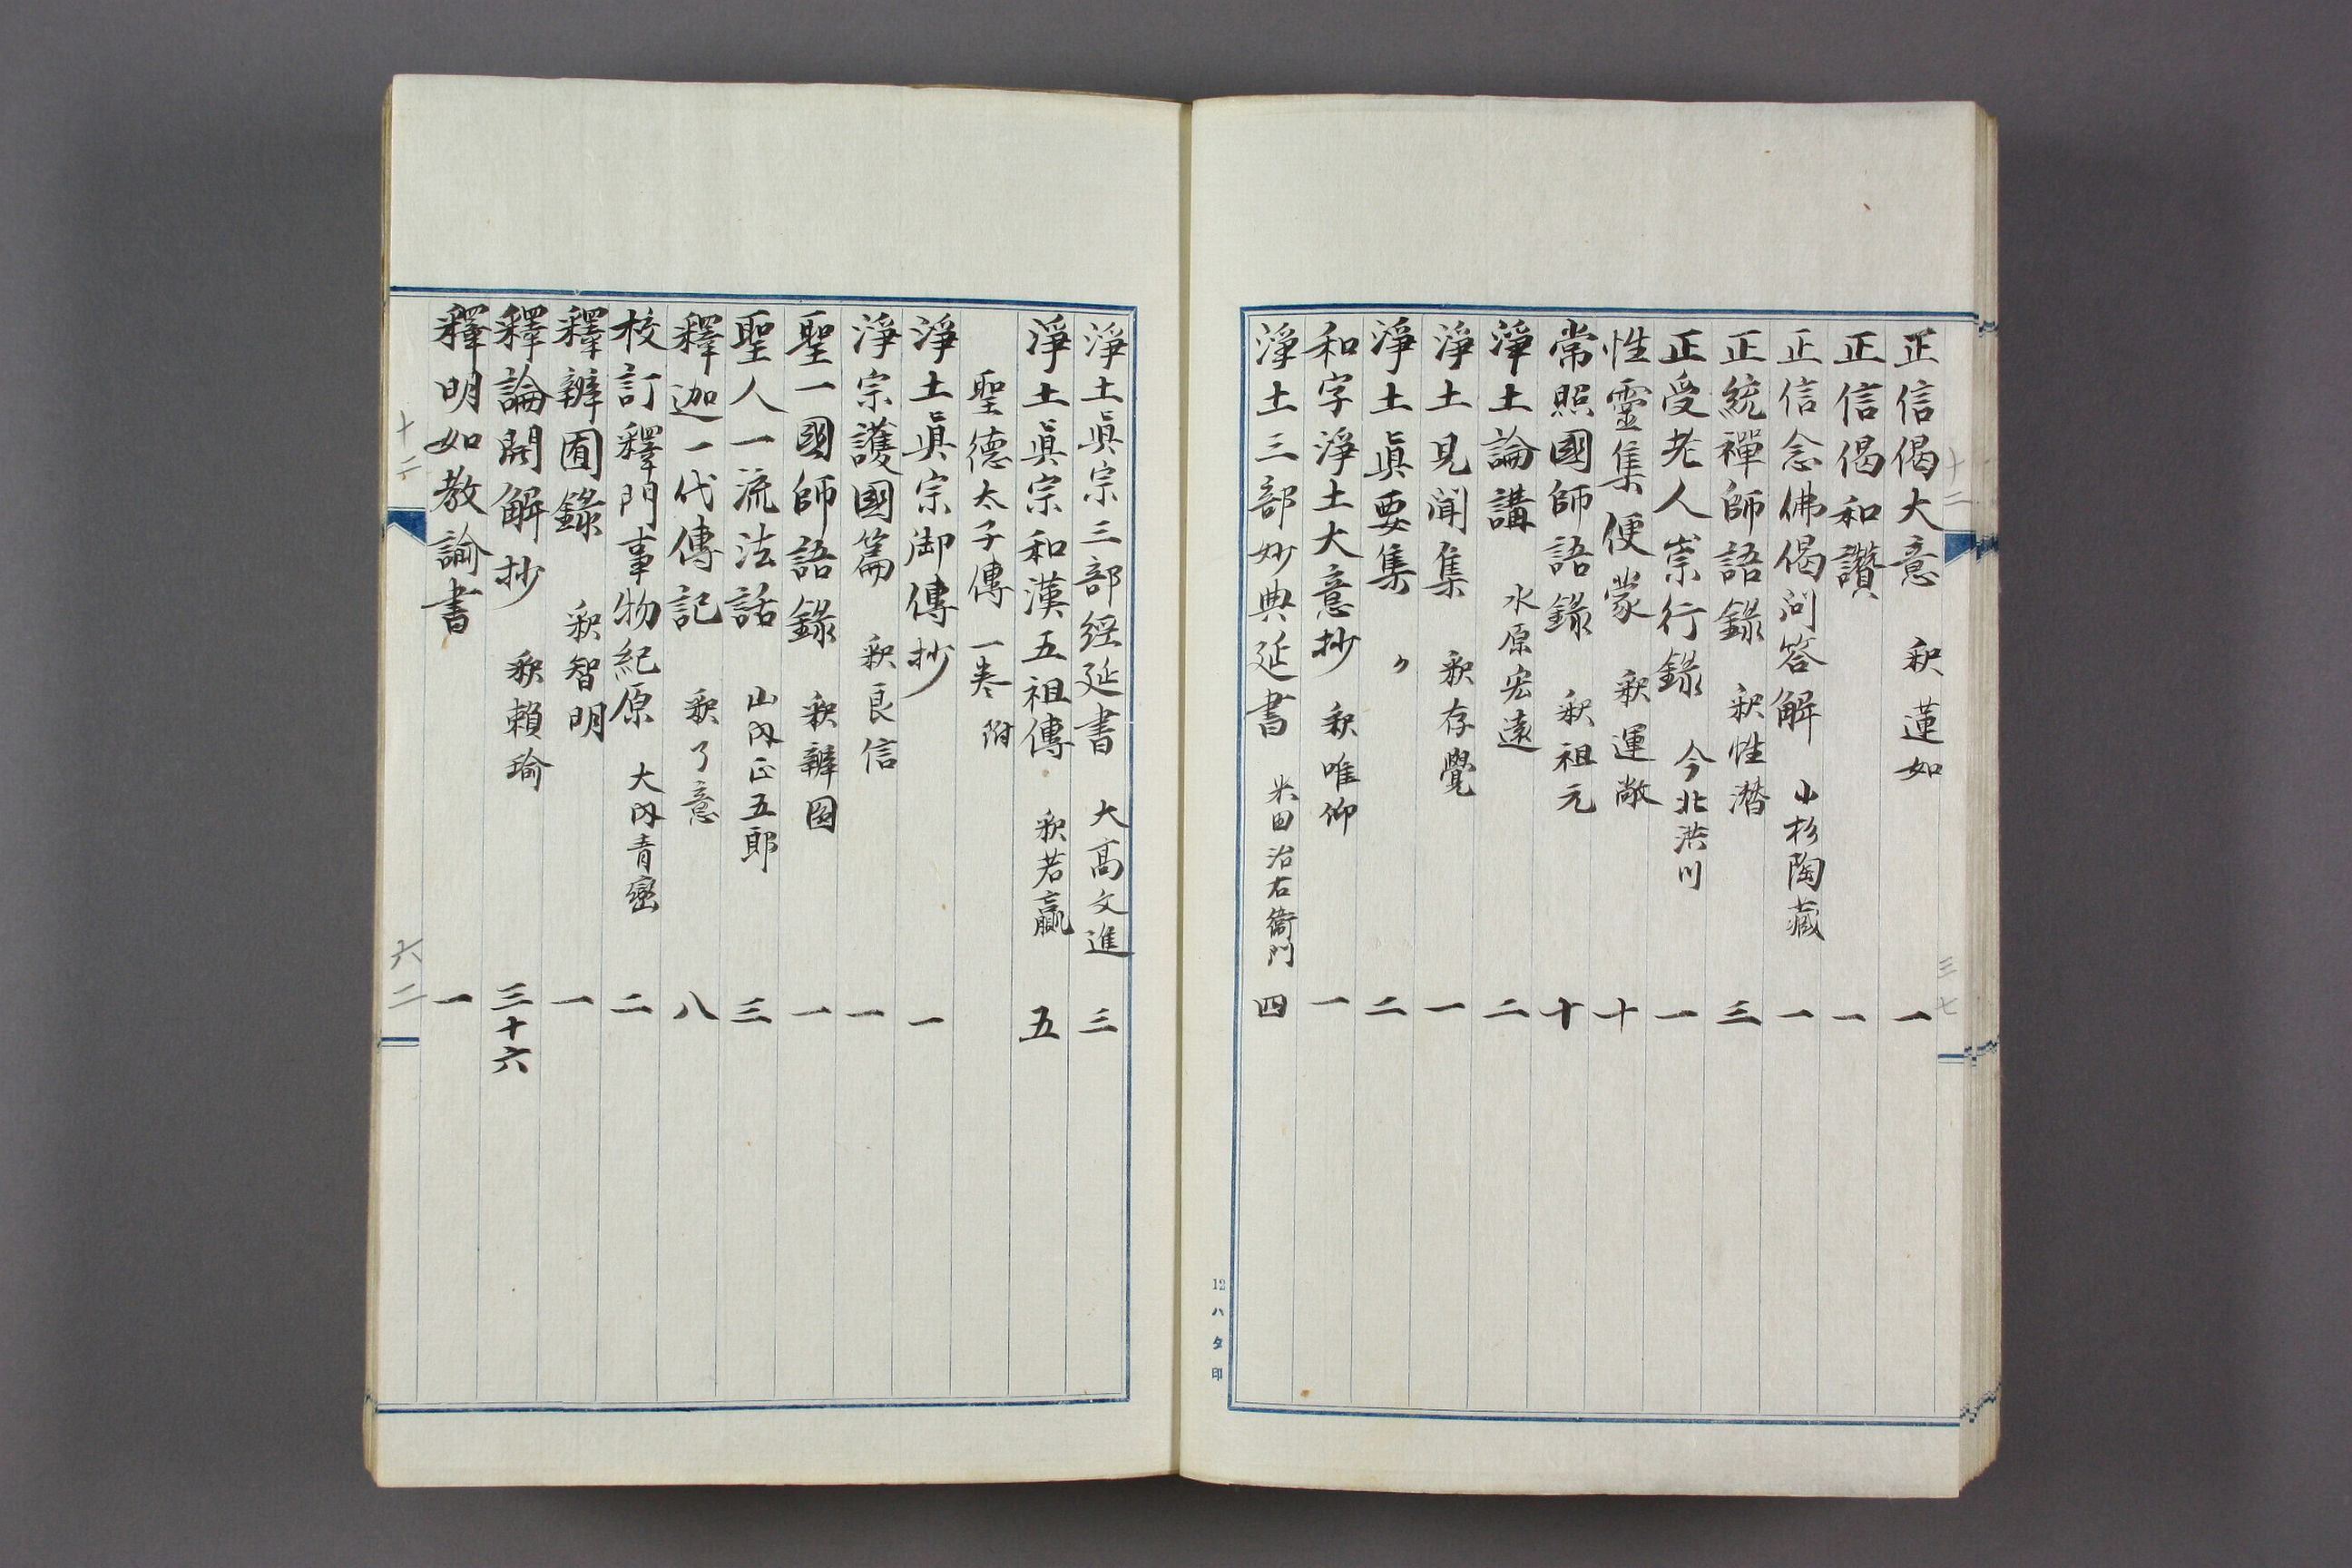 正信偈大意 釈蓮如 一
正信偈和讚 一
正信念佛偈问答解 小杉陶藏 一
正統禪師語錄 釈性潜 三
正受老人崇行錄 今北洪川 一
性靈集便蒙 釈運敞 十
常照國師語錄 釈祖元 十
淨土論講 水原宏遠 二
淨土見聞集 釈存覺 一
淨土眞要集 〃 二
和字淨土大意抄 釈唯仰 一
淨土三部妙典延書 米田治右衞門 四
十二
三七
12ハタ印
淨土眞宗三部經延書 大髙文進 三
淨土眞宗和漢五祖傳 釈若贏 五
聖德太子傳一巻附
淨土眞宗御傳抄 一
淨宗護國篇 釈良信 一
聖一國師語錄 釈辧囼 一
聖人一流法話 山内正五郎 三
釋迦一代傳記 釈了意 八
校訂釋門事物紀原 大内青巒 二
釋辧囿錄 釈智明 一
釋論開解抄 釈賴瑜 三十六
釋明如教諭書 一
十二
六二